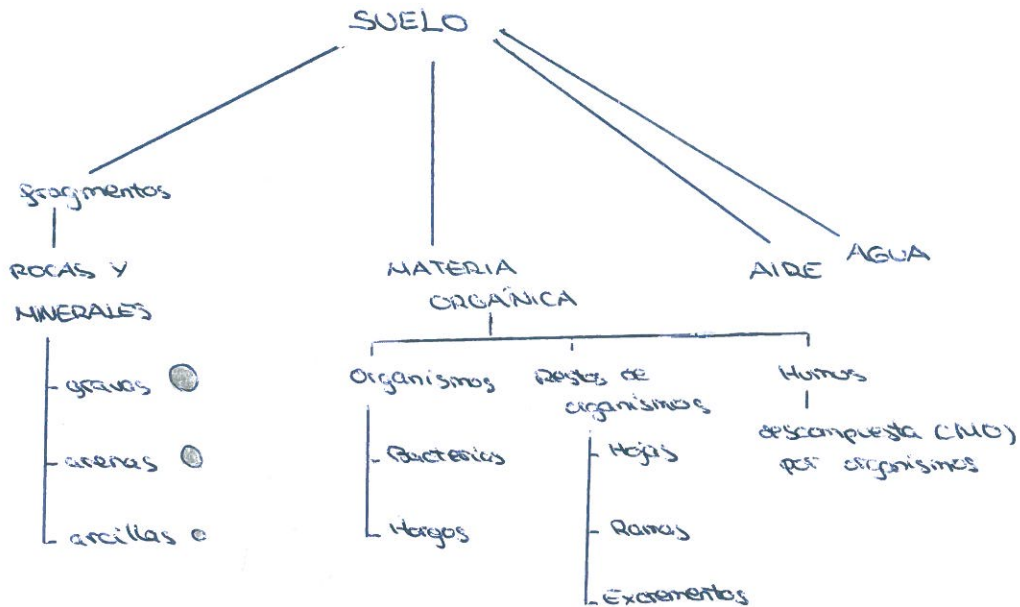 SUELO
fragmentos
ROCAS Y
MINERALES
- gravas
- arenas
- arcillas
MATERIA
ORGÁNICA
Organismos
- Bacterias
- Hongos
Restos de
organismos
- Hojas
- Ramas
- Excrementos
Humus
descompuesta (MO)
por organismos
AIRE
AGUA